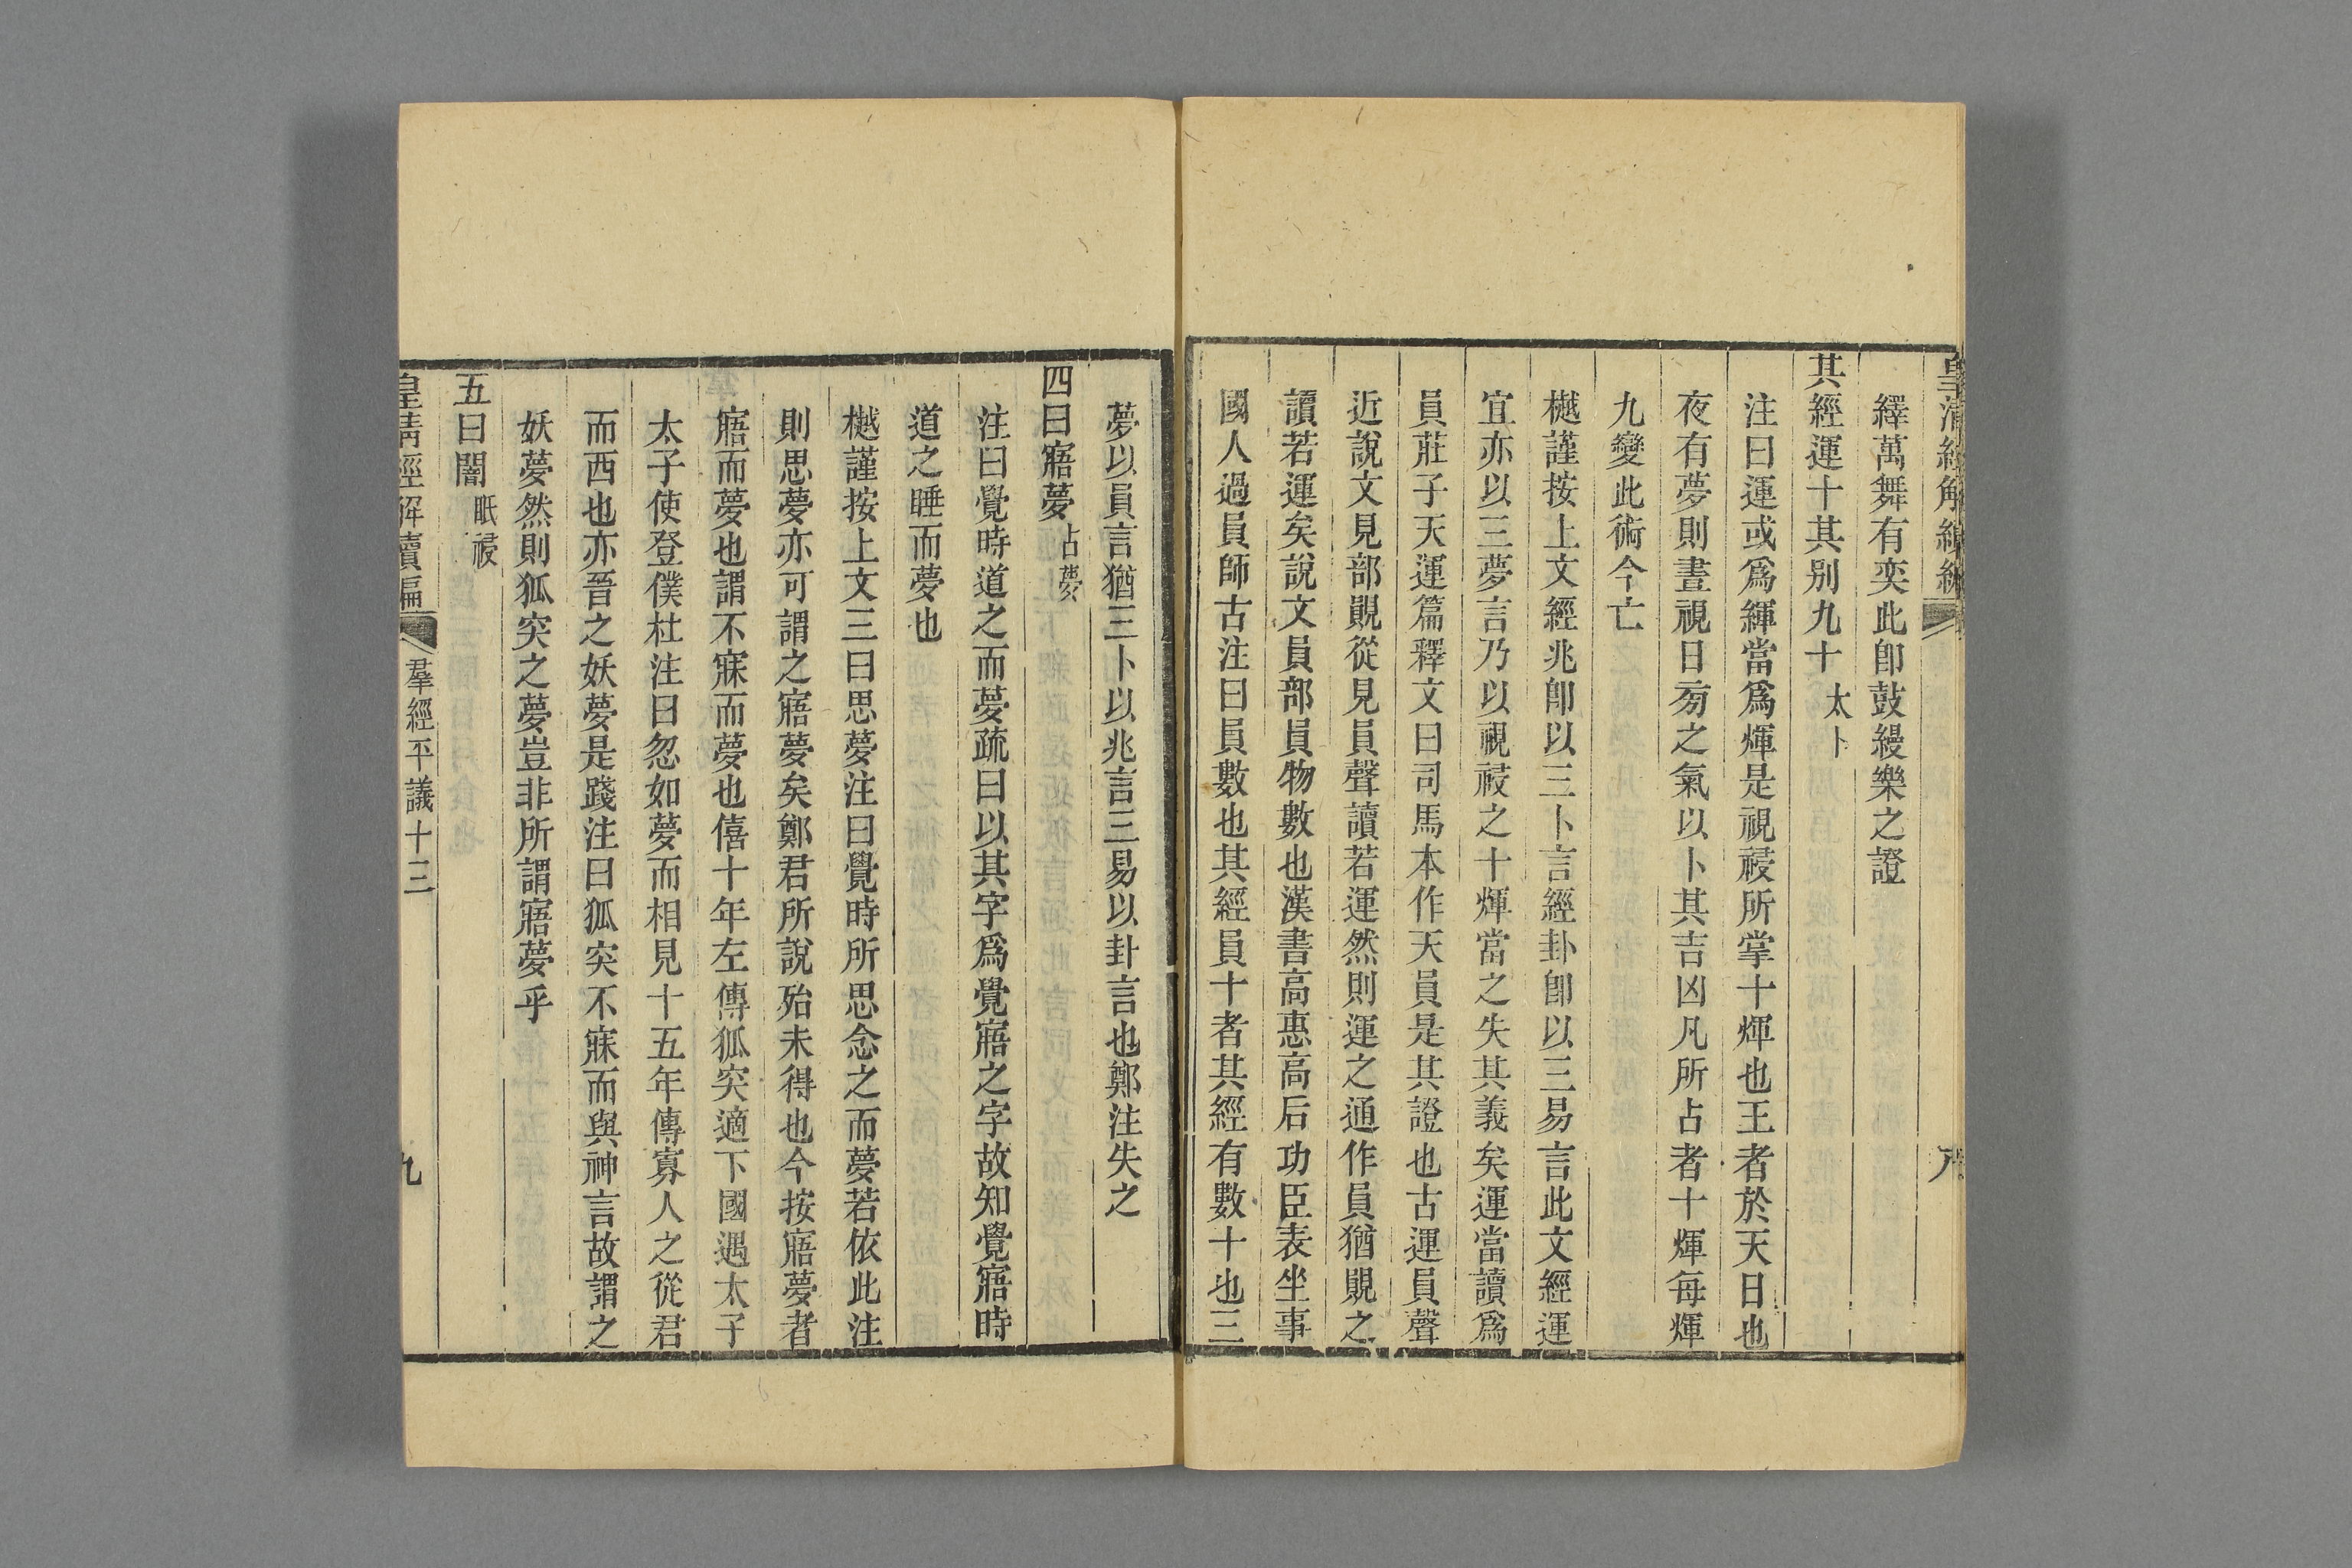 繹萬舞有奕此卽鼓縵樂之證
其經運十其別九十 太卜
注曰運或爲緷當爲煇是視祲所掌十煇也王者於天日也
夜有夢則晝視日旁之氣以卜其吉凶凡所占者十煇每煇
九變此術今亡
樾謹按上文經兆卽以三卜言經卦卽以三易言此文經運
宜亦以三夢言乃以視祲之十煇當之失其義矣運當讀爲
員莊子天運篇釋文曰司馬本作天員是其證也古運員聲
近說文見部覞從見員聲讀若運然則運之通作員猶覞之
讀若運矣說文員部員物數也漢書高惠高后功臣表坐事
國人過員師古注曰員數也其經員十者其經有數十也三
夢以員言猶三卜以兆言三易以卦言也鄭注失之
四曰寤夢 占夢
注曰覺時道之而夢疏曰以其字爲覺寤之字故知覺寤時
道之睡而夢也
樾謹按上文三曰思夢注曰覺時所思念之而夢若依此注
則思夢亦可謂之寤夢矣鄭君所說殆未得也今按寤夢者
寤而夢也謂不寐而夢也僖十年左傳狐突適下國遇太子
太子使登僕杜注曰忽如夢而相見十五年傳寡人之從君
而西也亦晉之妖夢是踐注曰狐突不寐而與神言故謂之
妖夢然則狐突之夢豈非所謂寤夢乎
五曰闇 眡祲
皇清經解續編
羣經平議十三
九